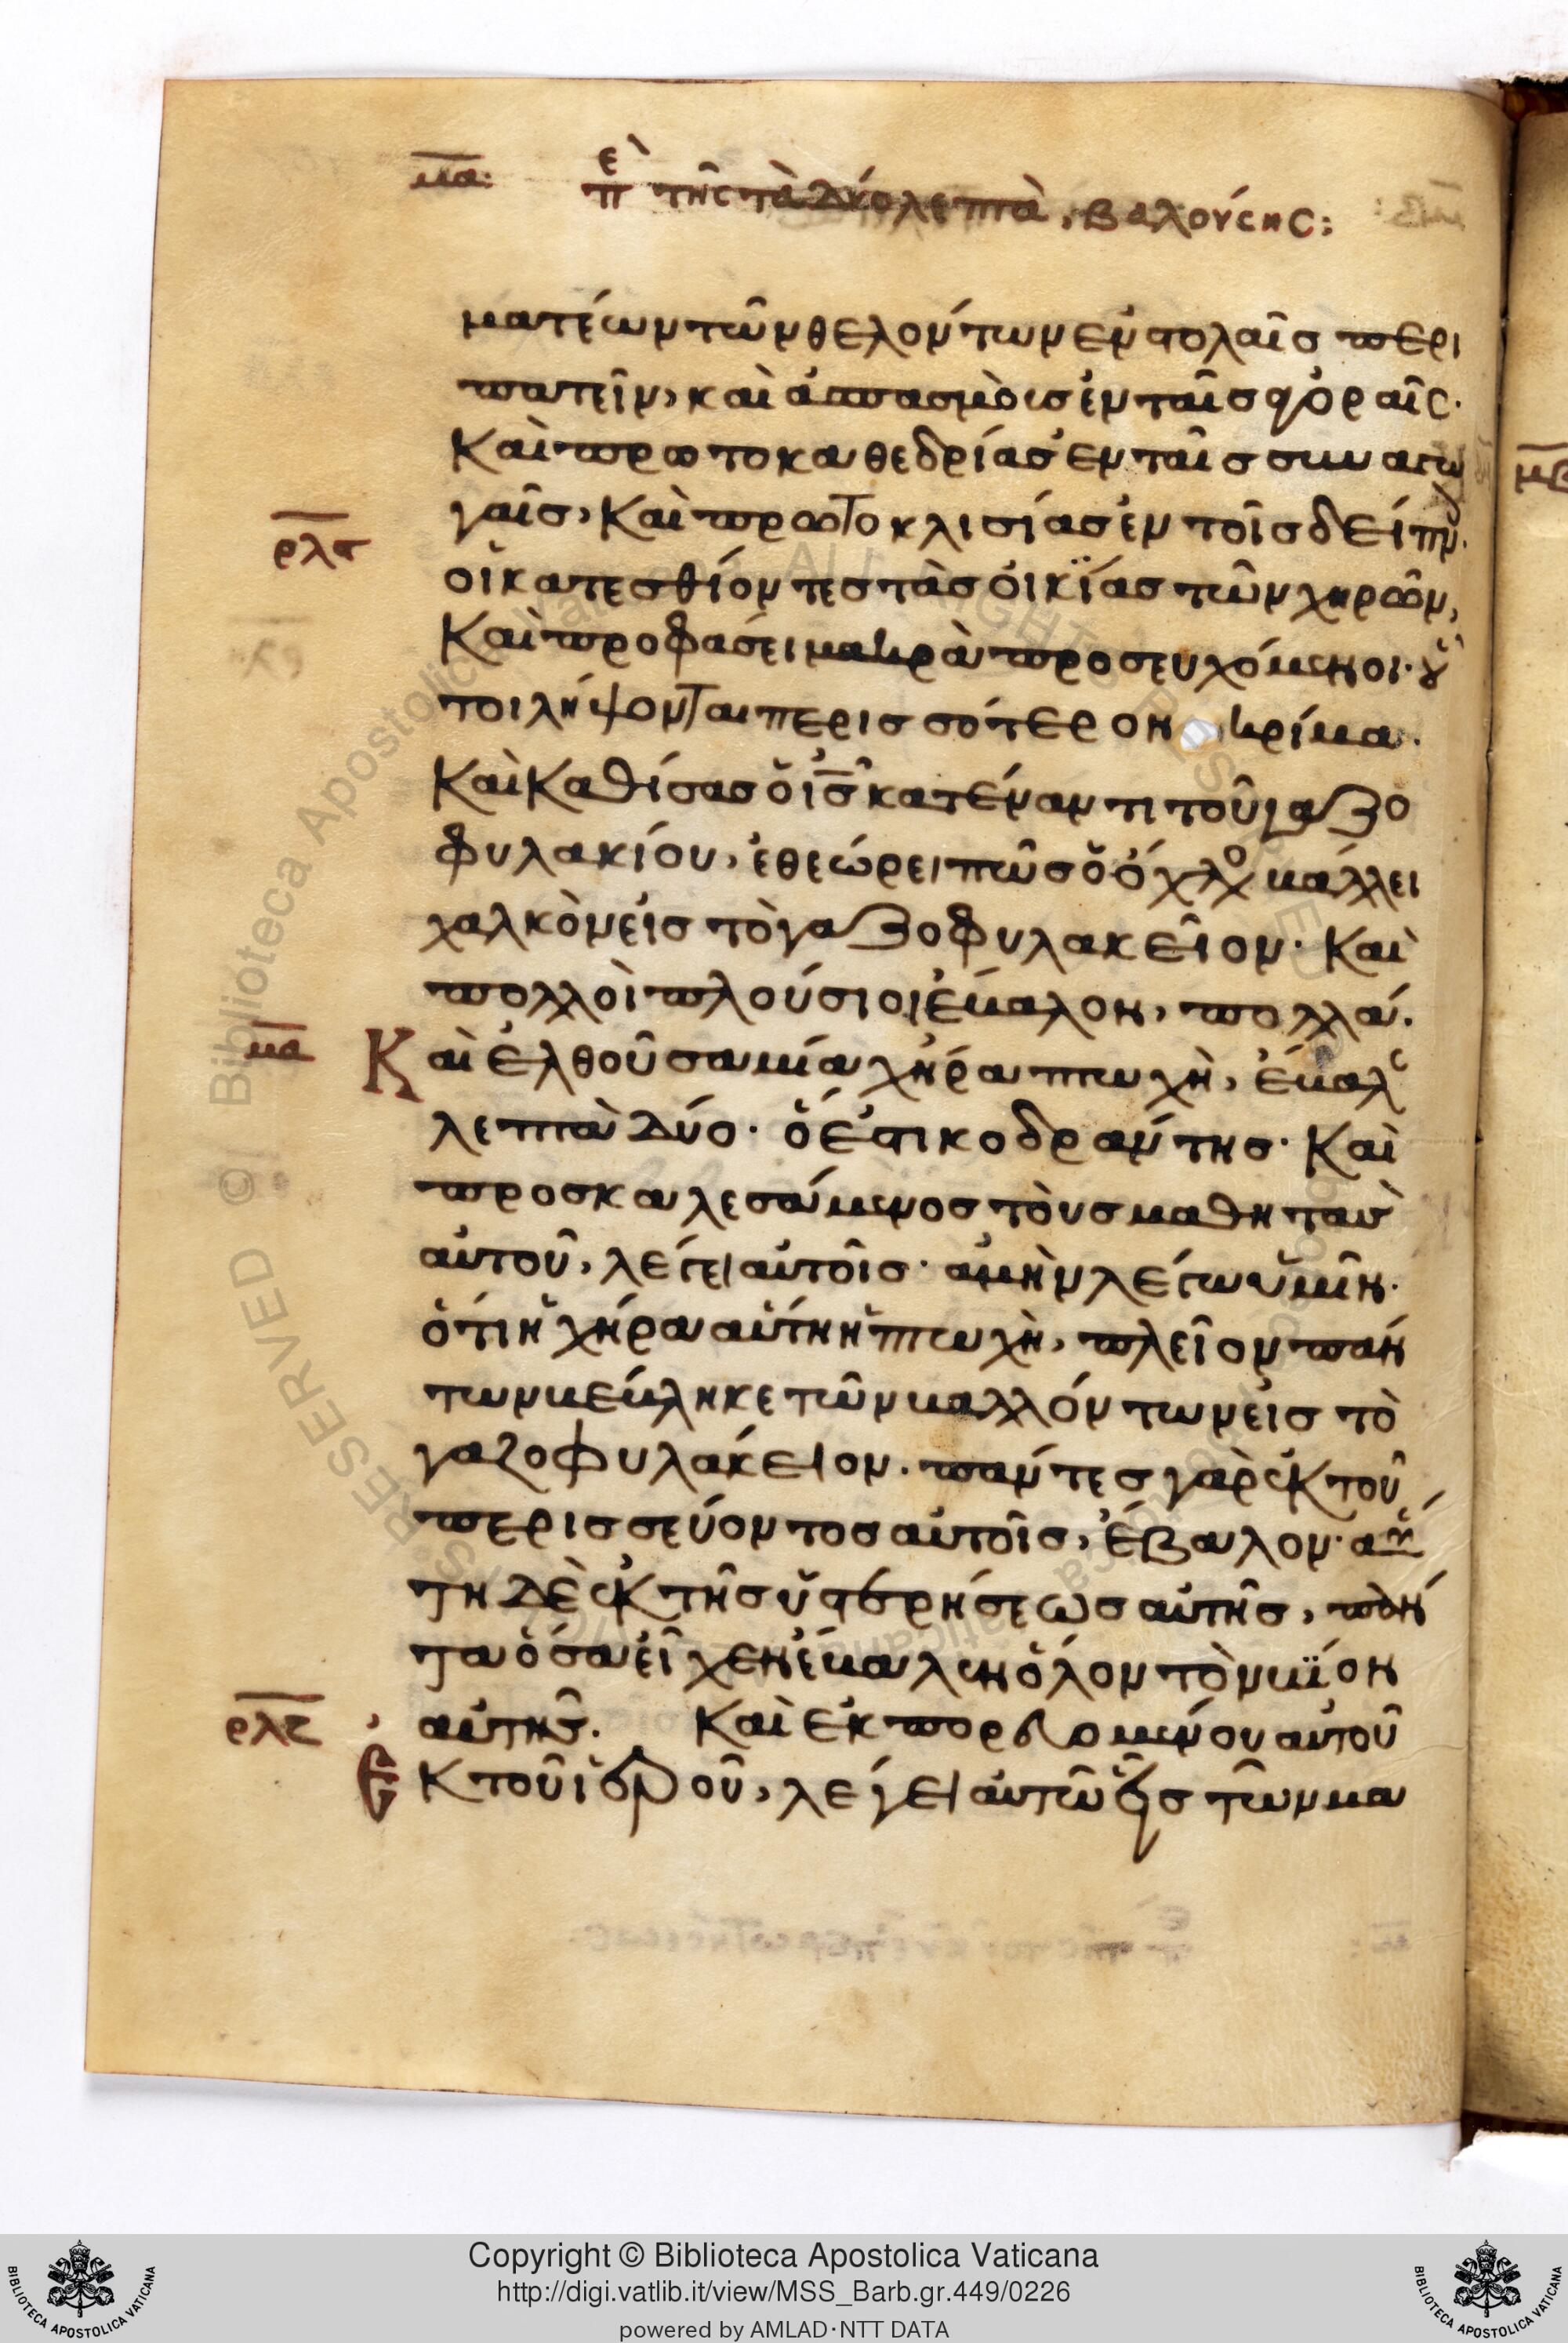 μα: επὶ τῆς τὰ δύο λεπτὰ, βαλούσης:
ματέων τῶν θελόντων εν στολαῖς περι
πατεῖν, καὶ ἀσπασμὸισ ἐν ταῖς ἀγοραῖς.
Καὶ πρωτοκαθεδρίας ἐν ταῖς συναγω
γαῖς, Καὶ πρωτοκλισίας ἐν τοῖς δείπν.
ρλς
οἱ κατεσθίοντες τὰς οἰκΐας τῶν χηρῶν,
Καὶ προφάσει μακρὰ προσευχόμενοι. οὗ
τοι λήψονται περισσότερον κρίμα.
Καὶ Καθίσας ὁ ἰς κατέναντι τοῦ γαζο
φυλακίου, ἐθεώρει πῶς ὁ ὄχλο βάλλει
χαλκὸν εἰς τὸ γαζοφυλακεῖον. Καὶ
πολλοὶ πλούσιοι ἔβαλον, πολλά.
μα
Καὶ ἐλθοῦσα μία χήρα πτωχὴ, ἔβαλε
λεπτὰ δύο. ὅ ἐστι κοδράντης. Καὶ
προσκαλεσάμενος τοὺς μαθητὰς
αὐτοῦ, λέγει αὐτοῖς. ἀμὴν λέγω ὑμῖν.
ὅτι ἡ χήρα αὕτη ἡ πτωχὴ, πλεῖον πάν
των βέβληκε τῶν βαλλόντων εἰς τὸ
γαζοφυλάκειον. πάντες γὰρ ἐκ τοῦ
περισσεύοντος αὐτοῖς, ἔβαλον. αὕ
τη δὲ ἐκ τῆς ὑστερήσεως αὐτῆς, πάν
τα ὅσα εἶχεν ἔβαλεν ὅλον τὸν βΐον
ρλζ
αὐτῆς. Καὶ ἐκπορευομένου αὐτοῦ
ἐΚ τοῦ ἱεροῦ, λέγει αὐτῶ εἷς τῶν μα
Copyright © Biblioteca Apostolica Vaticana
http://digi.vatlib.it/view/MSS_Barb.gr.449/0226
powered by AMLAD·NTT DATA